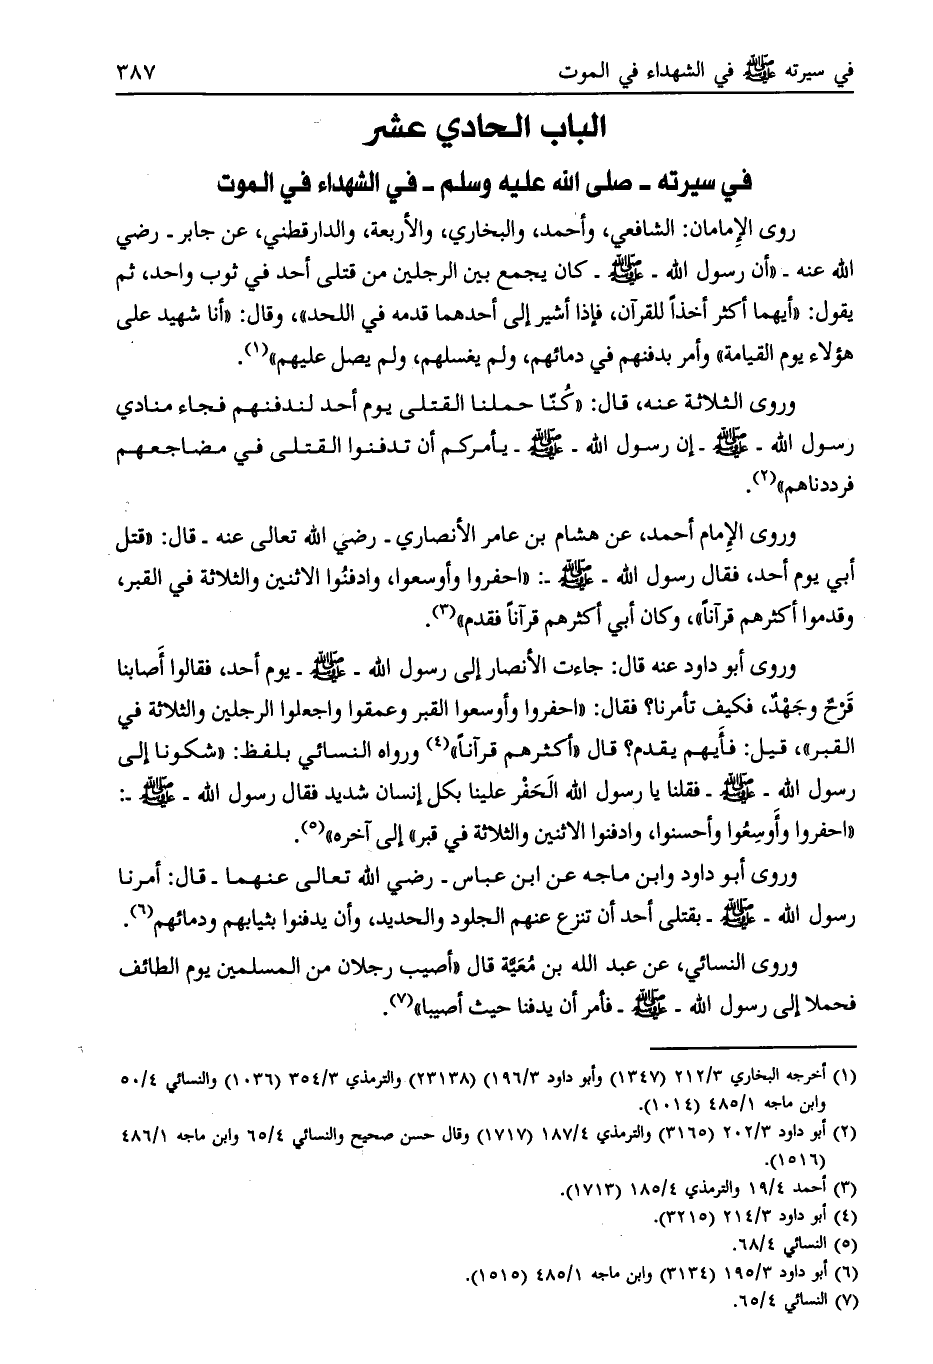 في سيرته ﷺ في الشهداء في الموت ٣٨٧
الباب الحادي عشر
في سيرته ـ صلى الله عليه وسلم ـ في الشهداء في الموت
روى الإمامان: الشافعي، وأحمد، والبخاري، والأربعة، والدارقطني، عن جابر ـ رضي
الله عنه ـ «أن رسول الله ـ ﷺ ـ كان يجمع بين الرجلين من قتلى أحد في ثوب واحد، ثم
يقول: «أيهما أكثر أخذاً للقرآن، فإذا أشير إلى أحدهما قدمه في اللحد»، وقال: «أنا شهيد على
هؤلاء يوم القيامة» وأمر بدفنهم في دمائهم، ولم يغسلهم، ولم يصل عليهم»(١).
وروى الثلاثة عنه، قال: «كُنّا حملنا القتلى يوم أحد لندفنهم فجاء منادي
رسول الله ـ ﷺ ـ إن رسول الله ـ ﷺ ـ يأمركم أن تدفنوا القتلى في مضاجعهم
فرددناهم»(٢).
وروى الإمام أحمد، عن هشام بن عامر الأنصاري ـ رضي الله تعالى عنه ـ قال: «قتل
أبي يوم أحد، فقال رسول الله ـ ﷺ ـ: «احفروا وأوسعوا، وادفنُوا الاثنين والثلاثة في القبر،
وقدموا أكثرهم قرآناً»، وكان أبي أكثرهم قرآناً فقدم»(٣).
وروى أبو داود عنه قال: جاءت الأنصار إلى رسول الله ـ ﷺ ـ يوم أحد، فقالوا أَصابنا
قَرْحٌ وجَهْدٌ، فكيف تأمرنا؟ فقال: «احفروا وأوسعوا القبر وعمقوا واجعلوا الرجلين والثلاثة في
القبر»، قيل: فأَيهم يقدم؟ قال «أكثرهم قرآناً»(٤) ورواه النسائي بلفظ: «شكونا إلى
رسول الله ـ ﷺ ـ فقلنا يا رسول الله الَحَفْر علينا بكل إنسان شديد فقال رسول الله ـ ﷺ ـ:
«احفروا وأَوسِعُوا وأحسنوا، وادفنوا الاثنين والثلاثة في قبر» إلى آخره»(٥).
وروى أبو داود وابن ماجه عن ابن عباس ـ رضي الله تعالى عنهما ـ قال: أمرنا
رسول الله ـ ﷺ ـ بقتلى أحد أن تنزع عنهم الجلود والحديد، وأن يدفنوا بثيابهم ودمائهم(٦).
وروى النسائي، عن عبد الله بن مُعَيَّة قال «أصيب رجلان من المسلمين يوم الطائف
فحملا إلى رسول الله ـ ﷺ ـ فأمر أن يدفنا حيث أصيبا»(٧).
(١) أخرجه البخاري ٢١٢/٣ (١٣٤٧) وأبو داود ١٩٦/٣) (٢٣١٣٨) والترمذي ٣٥٤/٣ (١٠٣٦) والنسائي ٥٠/٤
وابن ماجه ٤٨٥/١ (١٠١٤).
(٢) أبو داود ٢٠٢/٣ (٣١٦٥) والترمذي ١٨٧/٤ (١٧١٧) وقال حسن صحيح والنسائي ٦٥/٤ وابن ماجه ٤٨٦/١
(١٥١٦).
(٣) أحمد ١٩/٤ والترمذي ١٨٥/٤ (١٧١٣).
(٤) أبو داود ٢١٤/٣ (٣٢١٥).
(٥) النسائي ٦٨/٤.
(٦) أبو داود ١٩٥/٣ (٣١٣٤) وابن ماجه ٤٨٥/١ (١٥١٥).
(٧) النسائي ٦٥/٤.